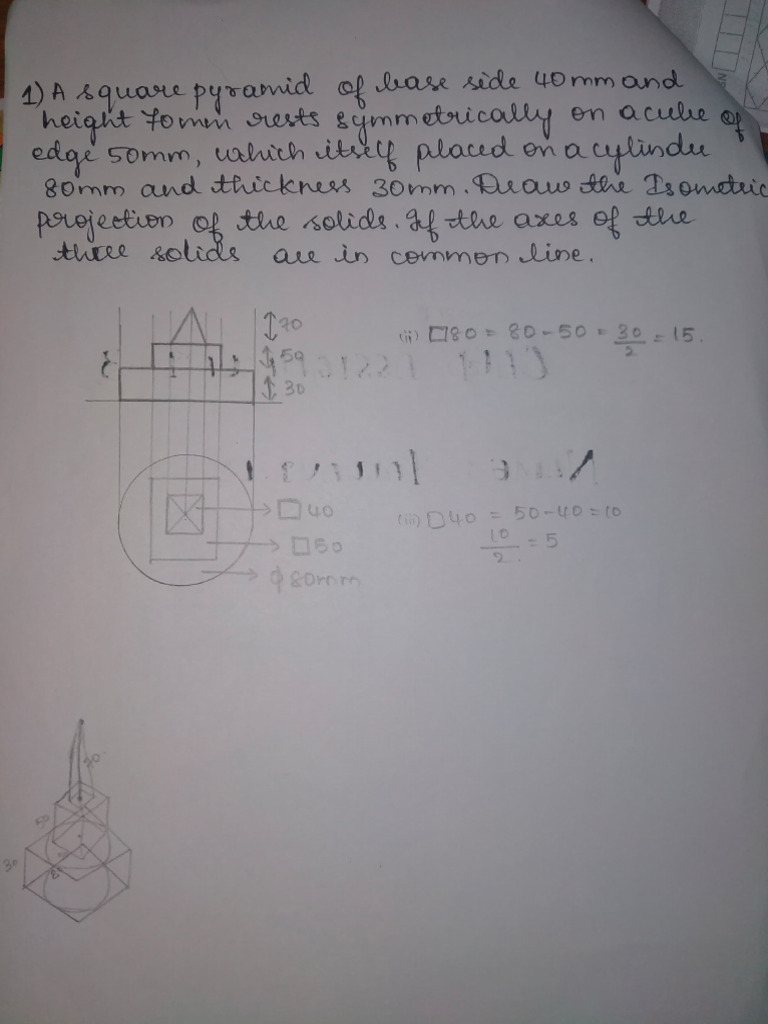 1) A square pyramid of base side 40mm and
height 70mm rests symmetrically on a cube of
edge 50mm, which itself placed on a cylinder
80mm and thickness 30mm. Draw the Isometric
projection of the solids. If the axes of the
three solids are in common line.
70
(ii) □80 = 80-50 = 30/2 = 15.
50
30
□40
(iii) □40 = 50-40 = 10
10/2 = 5
□50
ϕ80mm
50
30